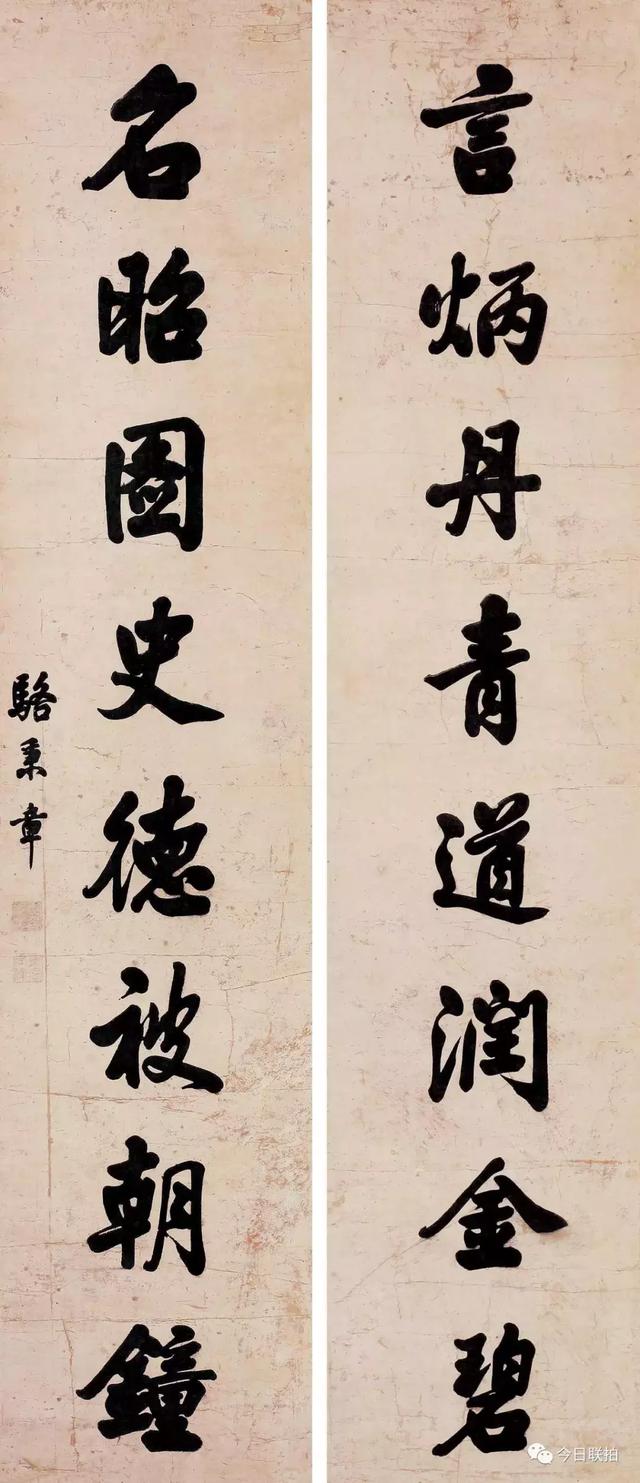 言炳丹青道潤金碧
名昭圖史德被朝鐘
駱秉章
今日联拍